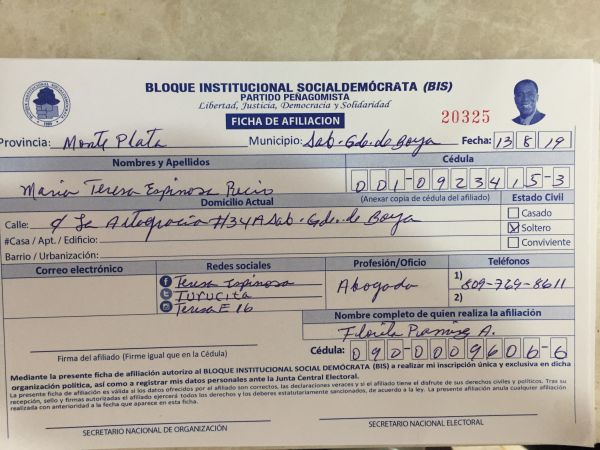 BLOQUE INSTITUCIONAL SOCIALDEMÓCRATA (BIS)
PARTIDO PEÑAGOMISTA
Libertad, Justicia, Democracia y Solidaridad
FICHA DE AFILIACION
20325
Provincia: Monte Plata Municipio: Sab. Gde. de Boya Fecha: 13 8 19
Nombres y Apellidos Cédula
Maria Teresa Espinosa Recio 001-0923415-3
(Anexar copia de cédula del afiliado)
Domicilio Actual Estado Civil
Calle: C/ La Altagracia #34A Sab. Gde. de Boya
#Casa / Apt. / Edificio:
Barrio / Urbanización:
Casado
X Soltero
Conviviente
Correo electrónico Redes sociales Profesión/Oficio Teléfonos
Teresa Espinosa
Turucita
Teresa E 16
Abogada
1) 809-769-8611
2)
Nombre completo de quien realiza la afiliación
Ramirez A.
Cédula: 090-0009606-6
Firma del afiliado (Firme igual que en la Cédula)
Mediante la presente ficha de afiliación autorizo al BLOQUE INSTITUCIONAL SOCIAL DEMÓCRATA (BIS) a realizar mi inscripción única y exclusiva en dicha
organización política, así como a registrar mis datos personales ante la Junta Central Electoral.
La presente ficha de afiliación es válida si los datos ofrecidos por el afiliado son correctos, las declaraciones veraces y si el afiliado tiene el disfrute de sus derechos civiles y políticos. Tras su
recepción, sello y firmas autorizadas el afiliado ejercerá todos los derechos y los deberes estatutariamente sancionados, de acuerdo a la ley. La presente afiliación anula cualquier afiliación
realizada con anterioridad a la fecha que aparece en esta ficha.
SECRETARIO NACIONAL DE ORGANIZACIÓN SECRETARIO NACIONAL ELECTORAL